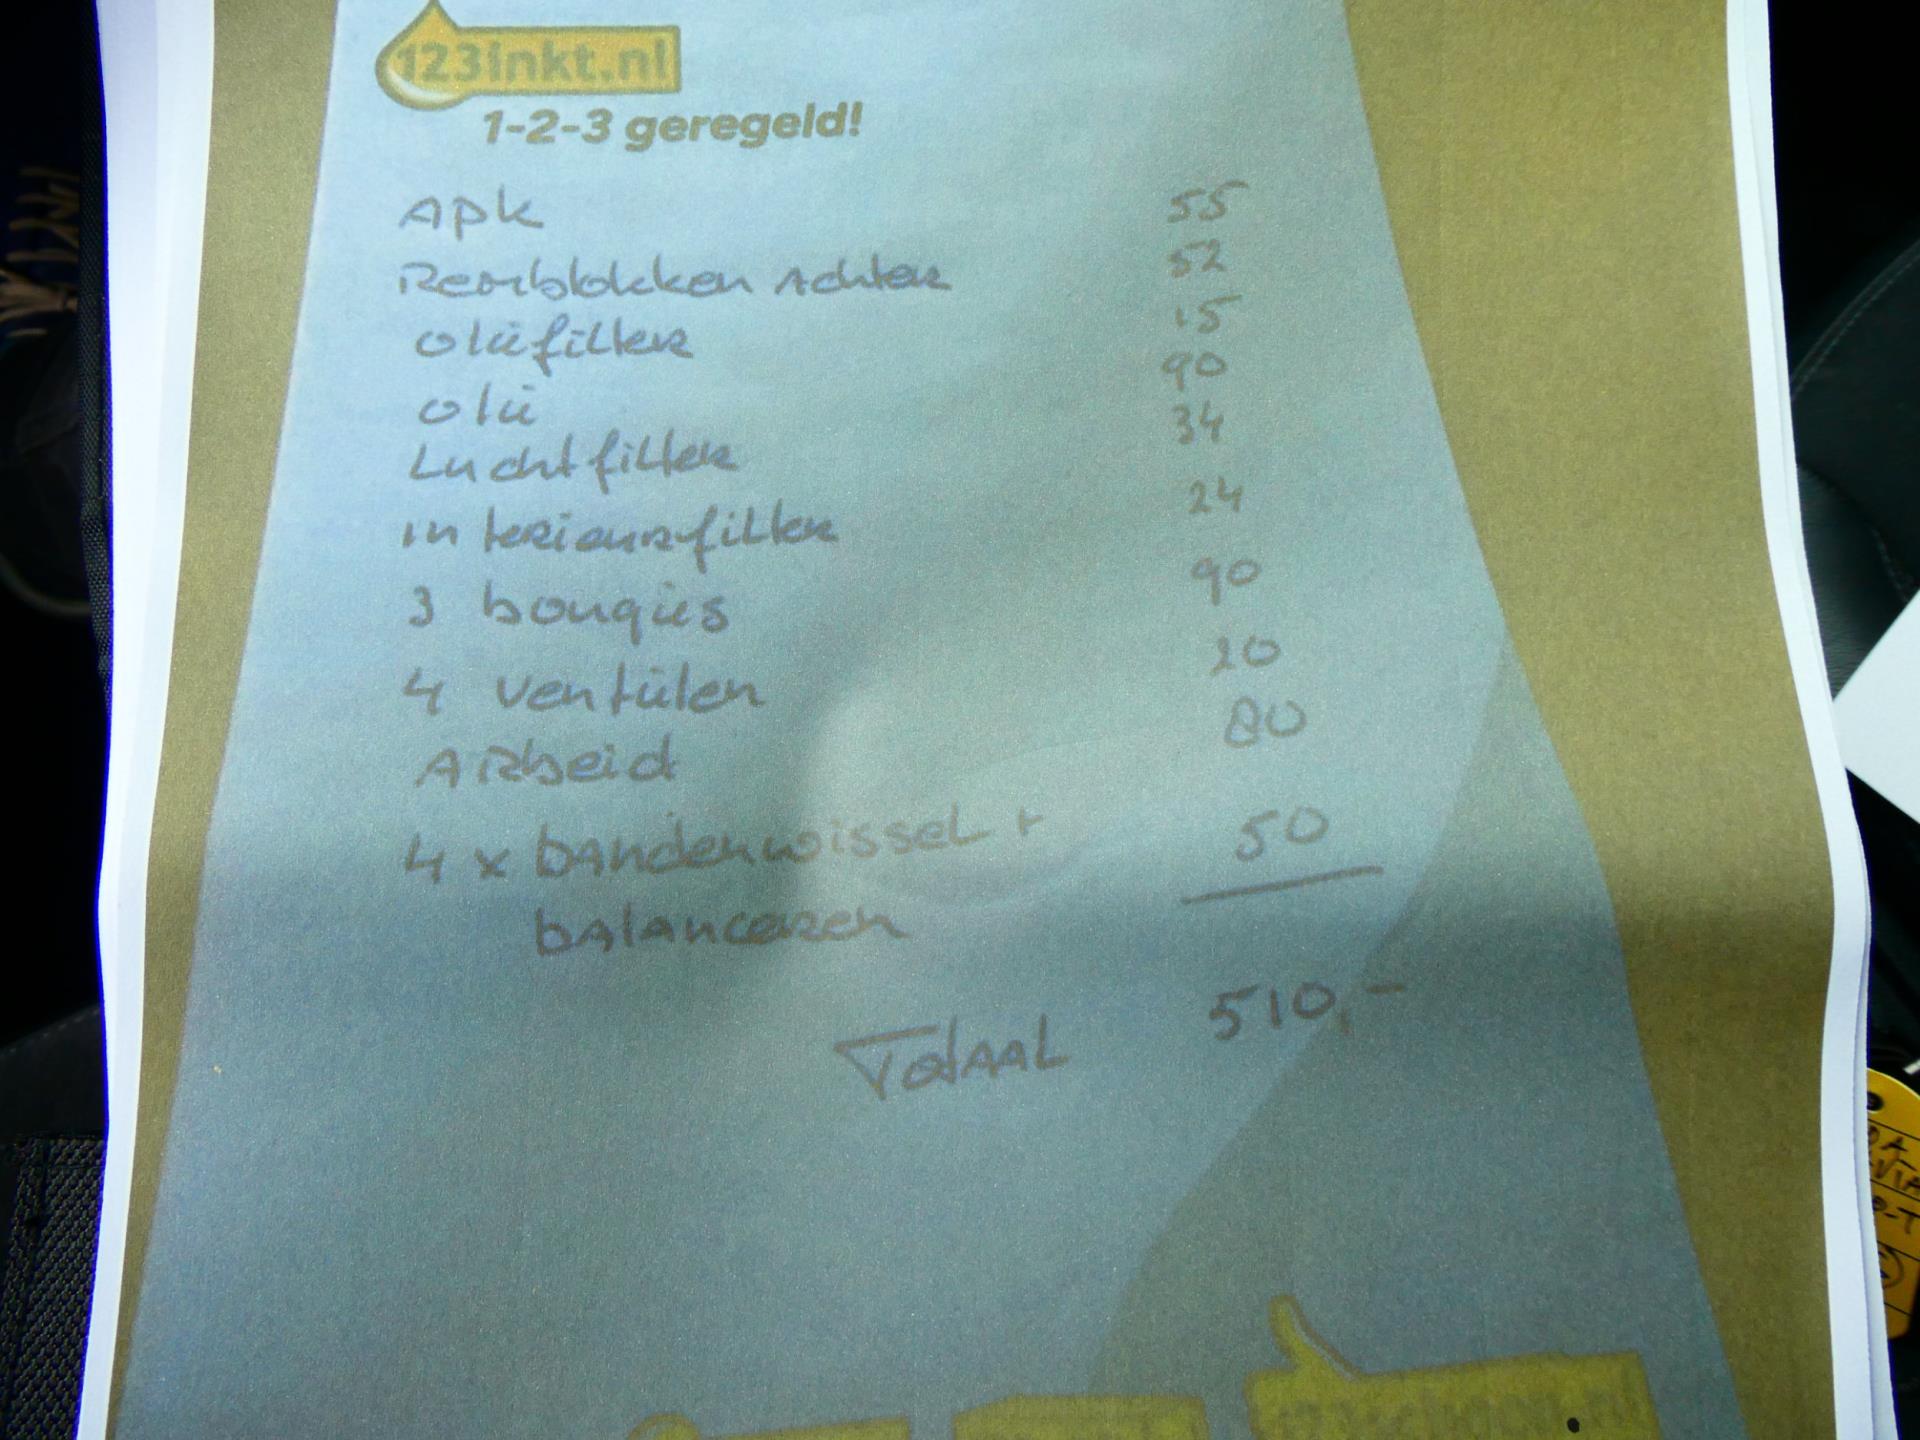 123inkt.nl
1-2-3 geregeld!
Apk 55
Remblokken Achter 52
oliefilter 15
olie 90
Luchtfilter 34
interieurfilter 24
3 bougies 90
4 ventielen 20
Arbeid 80
4 x bandenwissel + 50
balanceren
Totaal 510,-